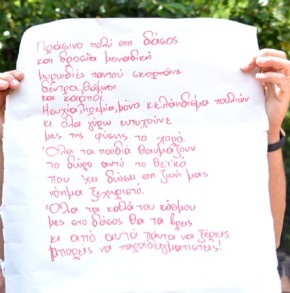 Πράσινο πολύ στο δάσος
και δροσιά μοναδική
μυρωδιές παντού σκορπάνε
δέντρα, θάμνοι
και καρποί
Ησυχία, ηρεμία, μόνο κελάηδισμα πουλιών
κι όλα γύρω ευτυχούνε
μες της φύσης το χορό.
Όλα τα παιδιά θαυμάζουν
το δώρο αυτό το θεϊκό
που 'χει δώσει στη ζωή μας
νόημα ξεχωριστό.
Όλα τα καλά του κόσμου
μες στο δάσος θα τα βρεις
κι από αυτά πάντα να ξέρεις
μπορείς να παραδειγματιστείς!